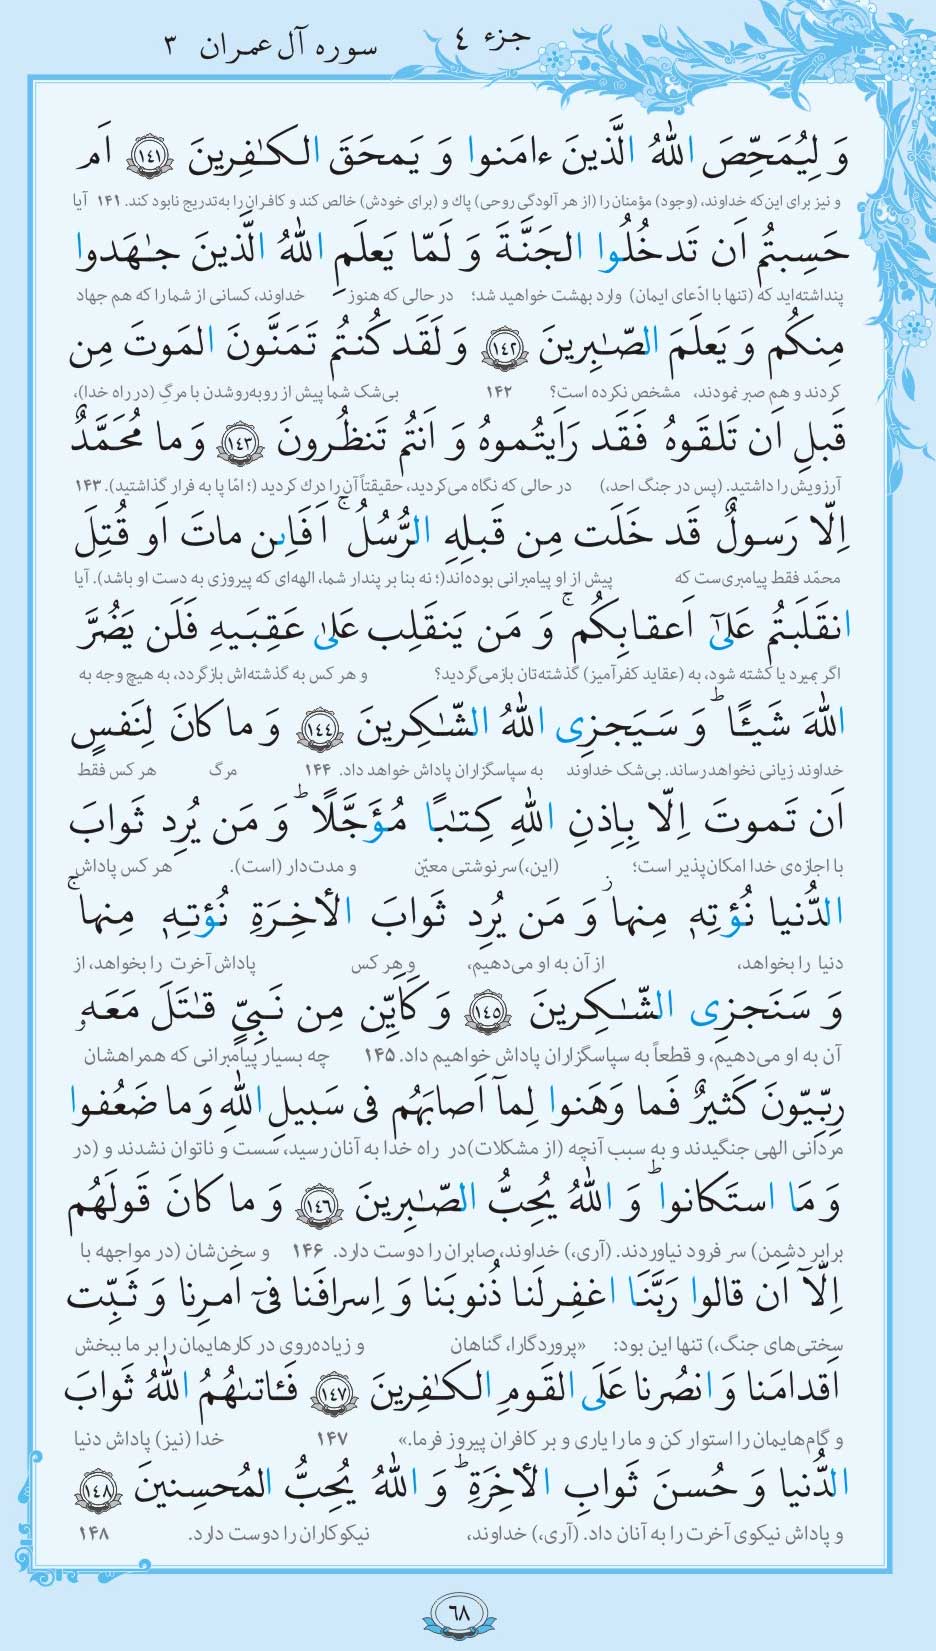 جزء ٤
سوره آل عمران ٣
وَ لِيُمَحِّصَ اللّٰهُ الَّذينَ ءامَنوا وَ يَمحَقَ الكٰفِرينَ ﴿١٤١﴾ اَم
و نیز برای این‌که خداوند، (وجود) مؤمنان را (از هر آلودگی روحی) پاك و (برای خودش) خالص کند و کافران را به‌تدریج نابود کند. ۱۴۱ آیا
حَسِبتُم اَن تَدخُلُوا الجَنَّةَ وَ لَمّا يَعلَمِ اللّٰهُ الَّذينَ جٰهَدوا
پنداشته‌اید که (تنها با ادّعای ایمان) وارد بهشت خواهید شد؛ در حالی که هنوز خداوند، کسانی از شما را که هم جهاد
مِنكُم وَ يَعلَمَ الصّٰبِرينَ ﴿١٤٢﴾ وَ لَقَد كُنتُم تَمَنَّونَ المَوتَ مِن
کردند و هم صبر نمودند، مشخص نکرده است؟ ۱۴۲ بی‌شک شما پیش از روبه‌روشدن با مرگِ (در راه خدا)،
قَبلِ اَن تَلقَوهُ فَقَد رَاَيتُموهُ وَ اَنتُم تَنظُرونَ ﴿١٤٣﴾ وَ ما مُحَمَّدٌ
آرزویش را داشتید. (پس در جنگ احد،) در حالی که نگاه می‌کردید، حقیقتاً آن را درك کردید (؛ امّا پا به فرار گذاشتید). ۱۴۳
اِلّا رَسولٌ قَد خَلَت مِن قَبلِهِ الرُّسُلُ ۚ اَفَاِي۟ن ماتَ اَو قُتِلَ
محمّد فقط پیامبری‌ست که پیش از او پیامبرانی بوده‌اند(؛ نه بنا بر پندار شما، الهه‌ای که پیروزی به دست او باشد). آیا
انقَلَبتُم عَلىٰٓ اَعقابِكُم ۚ وَ مَن يَنقَلِب عَلىٰ عَقِبَيهِ فَلَن يَضُرَّ
اگر بمیرد یا کشته شود، به (عقاید کفرآمیز) گذشته‌تان بازمی‌گردید؟ و هر کس به گذشته‌اش بازگردد، به هیچ وجه به
اللّٰهَ شَيئًا ۗ وَ سَيَجزِى اللّٰهُ الشّٰكِرينَ ﴿١٤٤﴾ وَ ما كانَ لِنَفسٍ
خداوند زیانی نخواهد رساند. بی‌شک خداوند به سپاسگزاران پاداش خواهد داد. ۱۴۴ مرگ هر کس فقط
اَن تَموتَ اِلّا بِاِذنِ اللّٰهِ كِتٰبًا مُؤَجَّلًا ۗ وَ مَن يُرِد ثَوابَ
با اجازه‌ی خدا امکان‌پذیر است؛ (این،) سرنوشتی معیّن و مدت‌دار (است). هر کس پاداش
الدُّنيا نُؤتِهٖ مِنها وَ مَن يُرِد ثَوابَ الأخِرَةِ نُؤتِهٖ مِنها ۚ
دنیا را بخواهد، از آن به او می‌دهیم، و هر کس پاداش آخرت را بخواهد، از
وَ سَنَجزِى الشّٰكِرينَ ﴿١٤٥﴾ وَ كَاَيِّن مِن نَبِيٍّ قٰتَلَ مَعَهٗ
آن به او می‌دهیم، و قطعاً به سپاسگزاران پاداش خواهیم داد. ۱۴۵ چه بسیار پیامبرانی که همراهشان
رِبِّيّونَ كَثيرٌ فَما وَهَنوا لِمآ اَصابَهُم فى سَبيلِ اللّٰهِ وَ ما ضَعُفوا
مردانی الهی جنگیدند و به سبب آنچه (از مشکلات) در راه خدا به آنان رسید، سست و ناتوان نشدند و (در
وَ مَا استَكانوا ۗ وَ اللّٰهُ يُحِبُّ الصّٰبِرينَ ﴿١٤٦﴾ وَ ما كانَ قَولَهُم
برابر دشمن) سر فرود نیاوردند. (آری،) خداوند، صابران را دوست دارد. ۱۴۶ و سخن‌شان (در مواجهه با
اِلّآ اَن قالوا رَبَّنَا اغفِر لَنا ذُنوبَنا وَ اِسرافَنا فىٓ اَمرِنا وَ ثَبِّت
سختی‌های جنگ،) تنها این بود: «پروردگارا، گناهان و زیاده‌روی در کارهایمان را بر ما ببخش
اَقدامَنا وَ انصُرنا عَلَى القَومِ الكٰفِرينَ ﴿١٤٧﴾ فَـٔاتىٰهُمُ اللّٰهُ ثَوابَ
و گام‌هایمان را استوار کن و ما را یاری و بر کافران پیروز فرما.» ۱۴۷ خدا (نیز) پاداش دنیا
الدُّنيا وَ حُسنَ ثَوابِ الأخِرَةِ ۗ وَ اللّٰهُ يُحِبُّ المُحسِنينَ ﴿١٤٨﴾
و پاداش نیکوی آخرت را به آنان داد. (آری،) خداوند، نیکوکاران را دوست دارد. ۱۴۸
٦٨